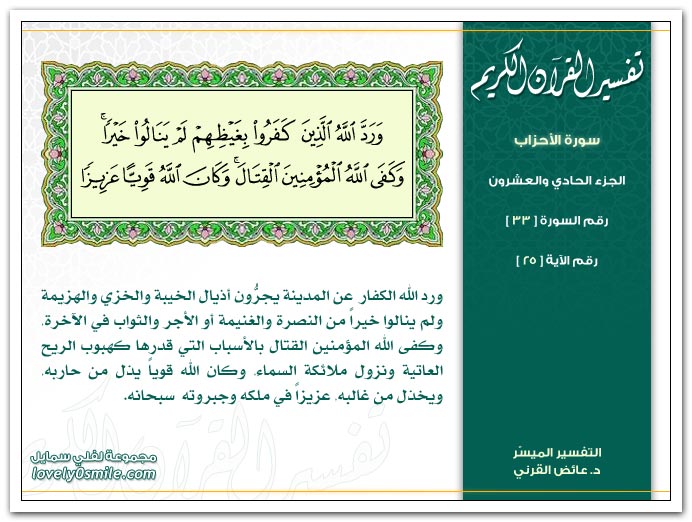 تفسير القرآن الكريم
سورة الأحزاب
الجزء الحادي والعشرون
رقم السورة [ ٣٣ ]
رقم الآية [ ٢٥ ]
وَرَدَّ ٱللَّهُ ٱلَّذِينَ كَفَرُواْ بِغَيْظِهِمْ لَمْ يَنَالُواْ خَيْرٗاۚ
وَكَفَى ٱللَّهُ ٱلْمُؤْمِنِينَ ٱلْقِتَالَۚ وَكَانَ ٱللَّهُ قَوِيًّا عَزِيزٗا
ورد الله الكفار عن المدينة يجرُّون أذيال الخيبة والخزي والهزيمة
ولم ينالوا خيراً من النصرة والغنيمة أو الأجر والثواب في الآخرة،
وكفى الله المؤمنين القتال بالأسباب التي قدرها كهبوب الريح
العاتية ونزول ملائكة السماء، وكان الله قوياً يذل من حاربه،
ويخذل من غالبه، عزيزاً في ملكه وجبروته سبحانه.
تفسير القرآن الكريم
التفسير الميسّر
د. عائض القرني
مجموعة لفلي سمايل
lovely0smile.com